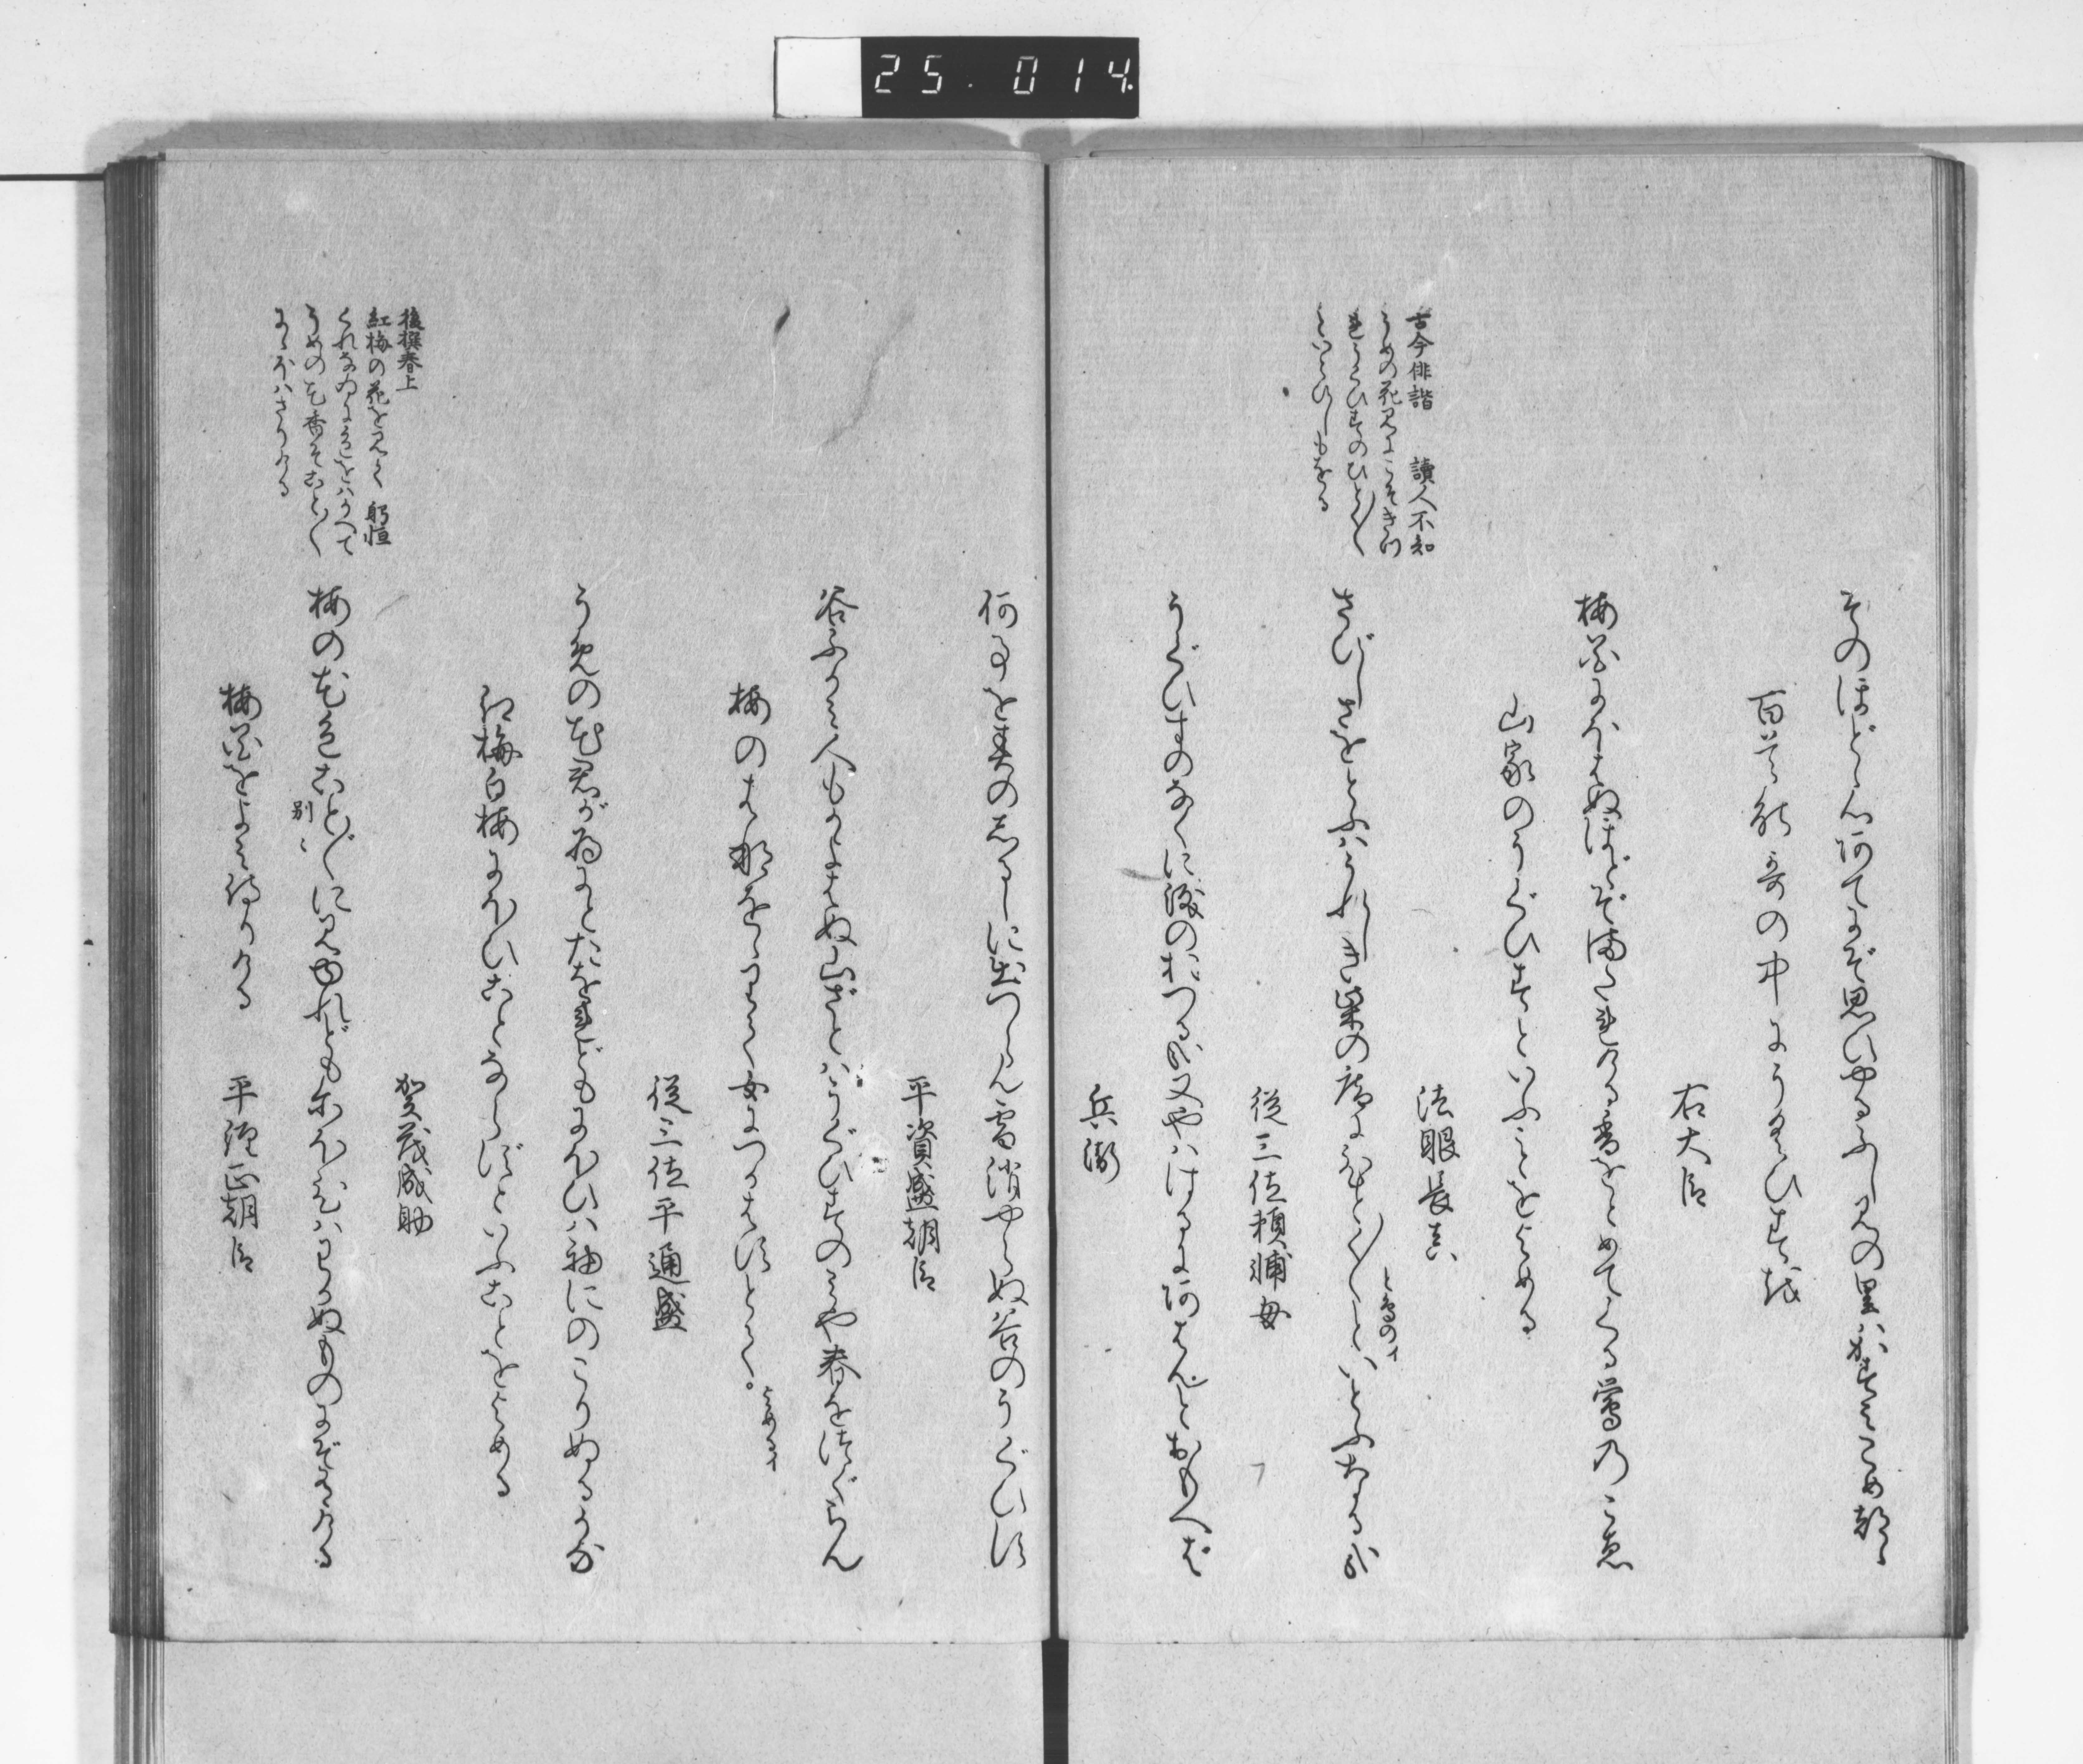 25.014.
そのほどと心あてにぞ思ひやるふしみの里はかすみこめ
百首哥の中にうぐひすを
右大臣
梅がえに
山家のうぐひすといふことをよめる
古今俳諧　讀人不知
うめの花見にこそきつ
れうぐひすのひとく／＼
といとひしもをる
法眼長真
さびしさをとふはうれしき
と鳥のイ
従三位頼輔母
うぐひすのなくに涙のおつるかな又やはけるにあはんとおもへば
兵衛
何事を春のしるしに出つらん雪消やらぬ谷のうぐひす
平資盛朝臣
谷ふかみ人もかよはぬ山ざとはうぐひすのみや春をつぐらん
梅のはなをうゑて女につかはすとて
よめるイ
従三位平通盛
うめの花君が為にとたをれどもにほひは袖にのこりぬるかな
紅梅白梅にほひことならずといふことをよめる
賀茂成助
後撰春上
紅梅の花を見て　躬恒
くれなゐに色をばかへて
うめの花香ぞこと／＼
にゝほはざりける
梅の花色こと／＼に見ゆれどもにほひはわかぬものにぞ有ける
別ゝ
梅花をよみ侍りける
平經正朝臣